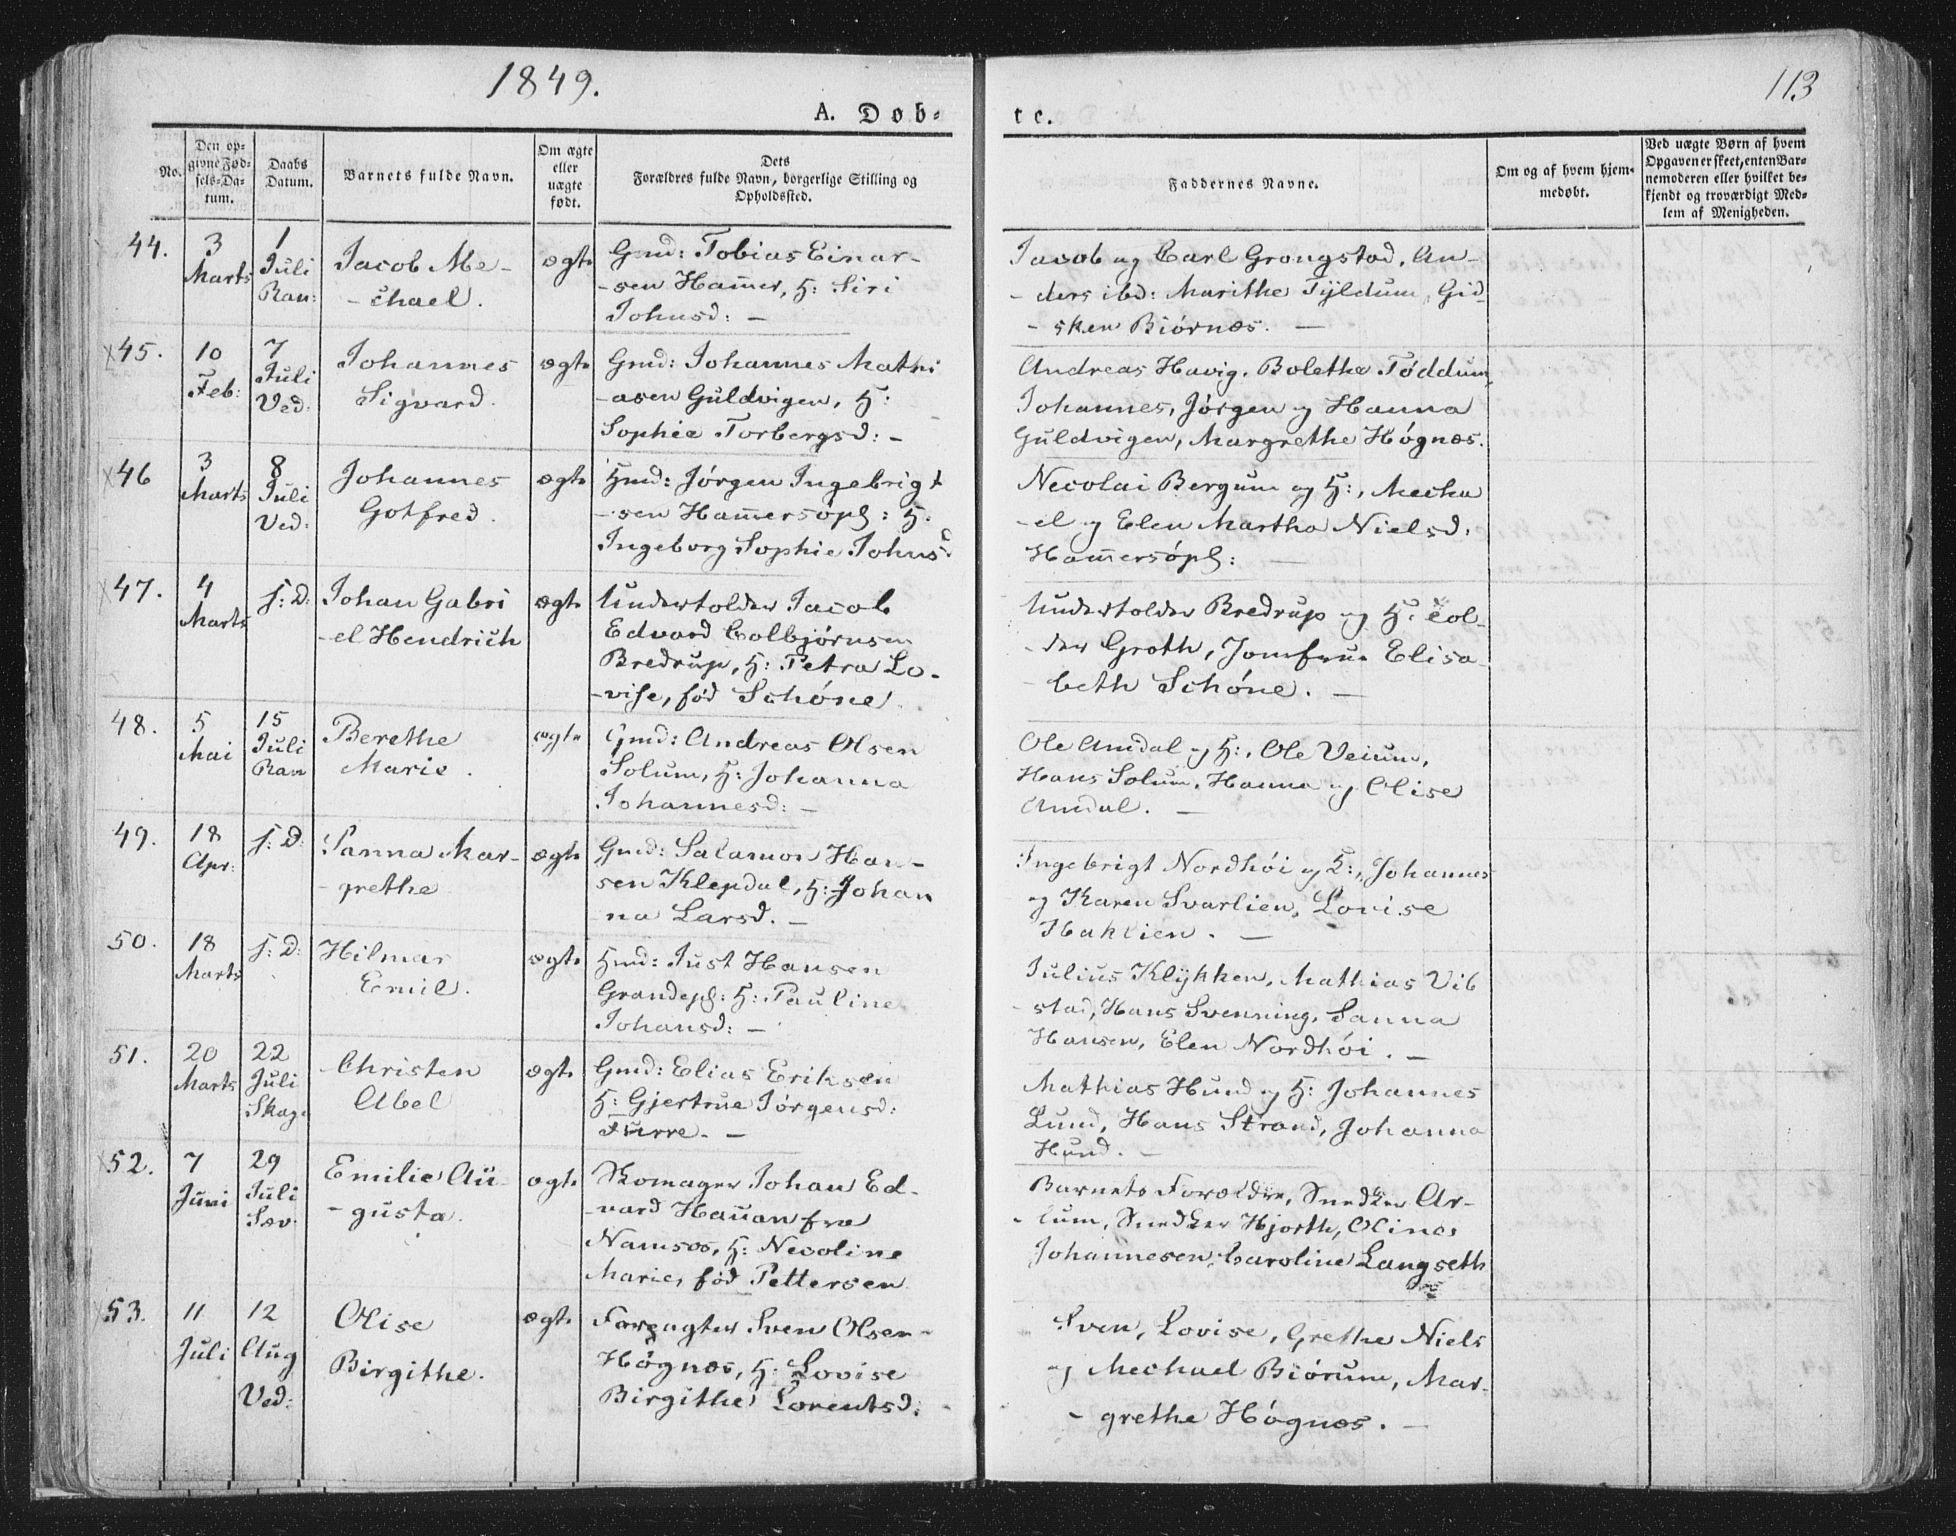 1849.
113
A. Døb-
te.
No.
Den op-
givne Fød-
sels-Da-
tum.
Daabs
Datum.
Barnets fulde Navn.
Om ægte
eller
uægte
født.
Dets
Forældres fulde Navn, borgerlige Stilling og
Opholdssted.
Faddernes Navne.
Om og af hvem hjem-
medøbt.
Ved uægte Børn af hvem
Opgaven er skeet, enten Bar-
nemoderen eller hvilket be-
kjendt og troværdigt Med-
lem af Menigheden.
44.
3
Marts
1
Juli
Ran:
Jacob Me-
-chael.
ægte
Gmd: Tobias Einar-
-sen Ham̄er, H: Siri
Johnsd: -
Jacob og Carl Grongstad, An-
-ders ibd: Marithe Tyldum, Gid-
-sken Biörnæs. -
45.
10
Feb:
7
Juli
Ved:
Johannes
Sigvard.
ægte
Gmd: Johannes Mathi
-asen Guldvigen, H:
Sophie Torbergsd: -
Andreas Havig, Bolethe Föddum,
Johannes, Jörgen og Hanna
Guldvigen, Margrethe Högnæs.
46
3
Marts
8
Juli
Ved:
Johannes
Gotfred.
ægte
Hmd: Jörgen Ingebrigt
-sen Ham̄ersöpl: H.
Ingeborg Sophie Johnsd
Necolai Bergum og H:, Mecha
-el og Elen Martha Nielsd.
Ham̄ersöpl:
47.
4
Marts
s: D:
Johan Gabri
-el Hendrich
ægte
Undertolder Jacob
Edvard Colbjörnsen
Bredrup, H: Petra Lo-
-vise, föd Schöne.
Undertolder Bredrup og H: Tol-
-der Groth, Jomfrue Elisa-
-beth Schöne. -
48.
5
Mai
15
Juli
Ran
Berethe
Marie.
ægte
Gmd: Andreas Olsen
Solum, H: Johanna
Johannesd: -
Ole Amdal og H:, Ole Veium,
Hans Solum, Hanna og Olise
Amdal. -
49.
18
Apr:
s: D:
Sanna Mar-
-grethe
ægte
Gmd: Salamon Han-
sen Klepdal, H: Johan
-na Larsd. -
Ingebrigt Nordhöi og H:, Johannes
og Karen Svarlien, Lovise
Haklien. -
50.
18
Marts
s: D:
Hilmar
Emil.
ægte
Hmd: Just Hansen
Grandepl: H: Pauline
Johansd: -
Julius Klykken, Mathias Vib
-stad, Hans Svenning, Sanna
Hansen, Elen Nordhöi. -
51.
20
Marts
22
Juli
Skag.
Christen
Abel
ægte
Gmd: Elias Eriksen
H: Gjertrue Jörgensd:
Furre. -
Mathias Hund og H: Johannes
Lund, Hans Strand, Johanna
Hund. -
52.
7
Juni
29
Juli
Sæv.
Emilie Au-
-gusta.
ægte
Skomager Johan Ed-
-vard Hauan fra
Namsos, H: Necoline
Marie, föd Pettersen
Barnets Forældre, Snedker Ar-
-lum, Snedker Hjorth, Oline
Johannesen, Caroline Langseth
53.
11
Juli
12
Aug
Ved:
Olise
Birgithe.
ægte
Forpagter Sven Olsen
Högnæs, H: Lovise
Birgithe Lorentsd.
Sven, Lovise, Grethe Niels
og Mechael Biörum, Mar-
-grethe Högnæs. -